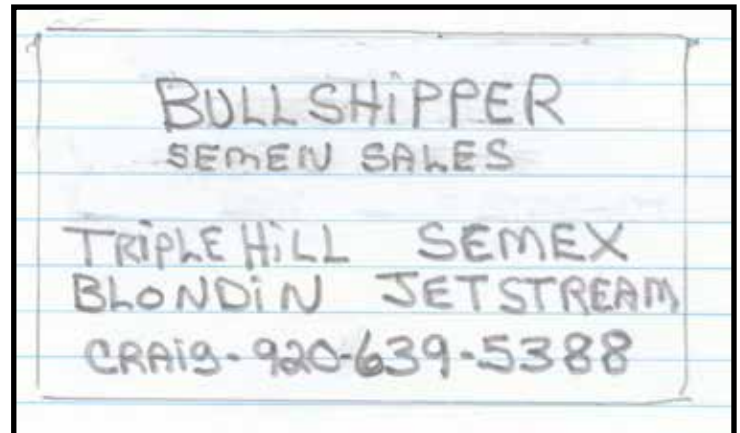 BULLSHiPPER
SEMEN SALES
TRiPLE HiLL SEMEX
BLONDiN JETSTREAM
CRAiG-920-639-5388